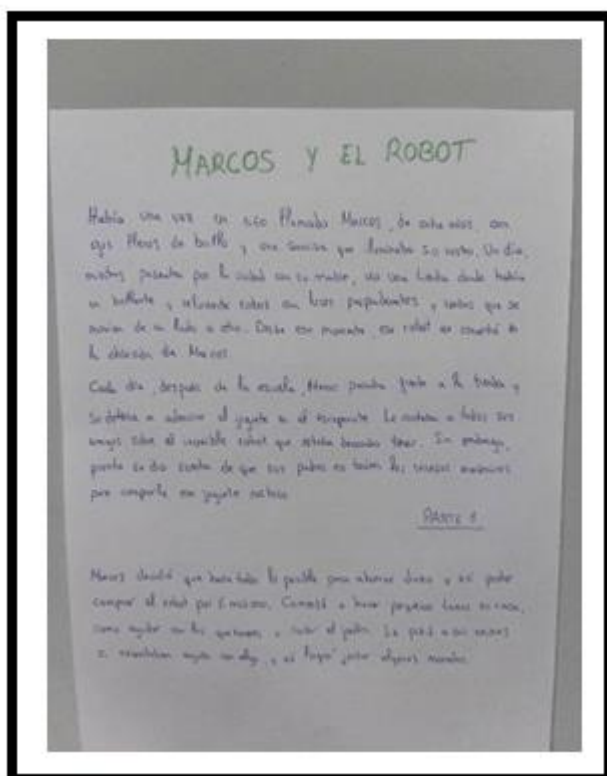 MARCOS Y EL ROBOT
Había una vez un niño llamado Marcos, de ocho años con
ojos llenos de brillo y una sonrisa que iluminaba su rostro. Un día,
mientras paseaba por la ciudad con su madre, vio una tienda donde había
un brillante y reluciente robot con luces parpadeantes y ruedas que se
movían de un lado a otro. Desde ese momento, ese robot se convirtió en
la obsesión de Marcos.
Cada día, después de la escuela, Marcos pasaba frente a la tienda y
se detenía a admirar el juguete en el escaparate. Le contaba a todos sus
amigos sobre el increíble robot que estaba deseando tener. Sin embargo,
pronto se dio cuenta de que sus padres no tenían los recursos económicos
para comprarle ese juguete
PARTE 1
Marcos decidió que haría todo lo posible para ahorrar dinero y así poder
comprar el robot por sí mismo. Comenzó a hacer pequeñas tareas en casa,
como ayudar con los quehaceres y cuidar el jardín. Le pidió a sus vecinos
si necesitaban ayuda con algo, y así logró juntar algunas monedas.